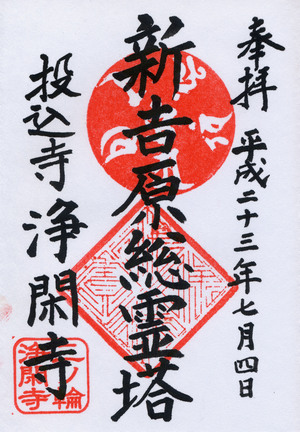 奉拝 平成二十三年七月四日
新吉原総霊塔
投込寺 浄閑寺
三ノ輪
浄閑寺